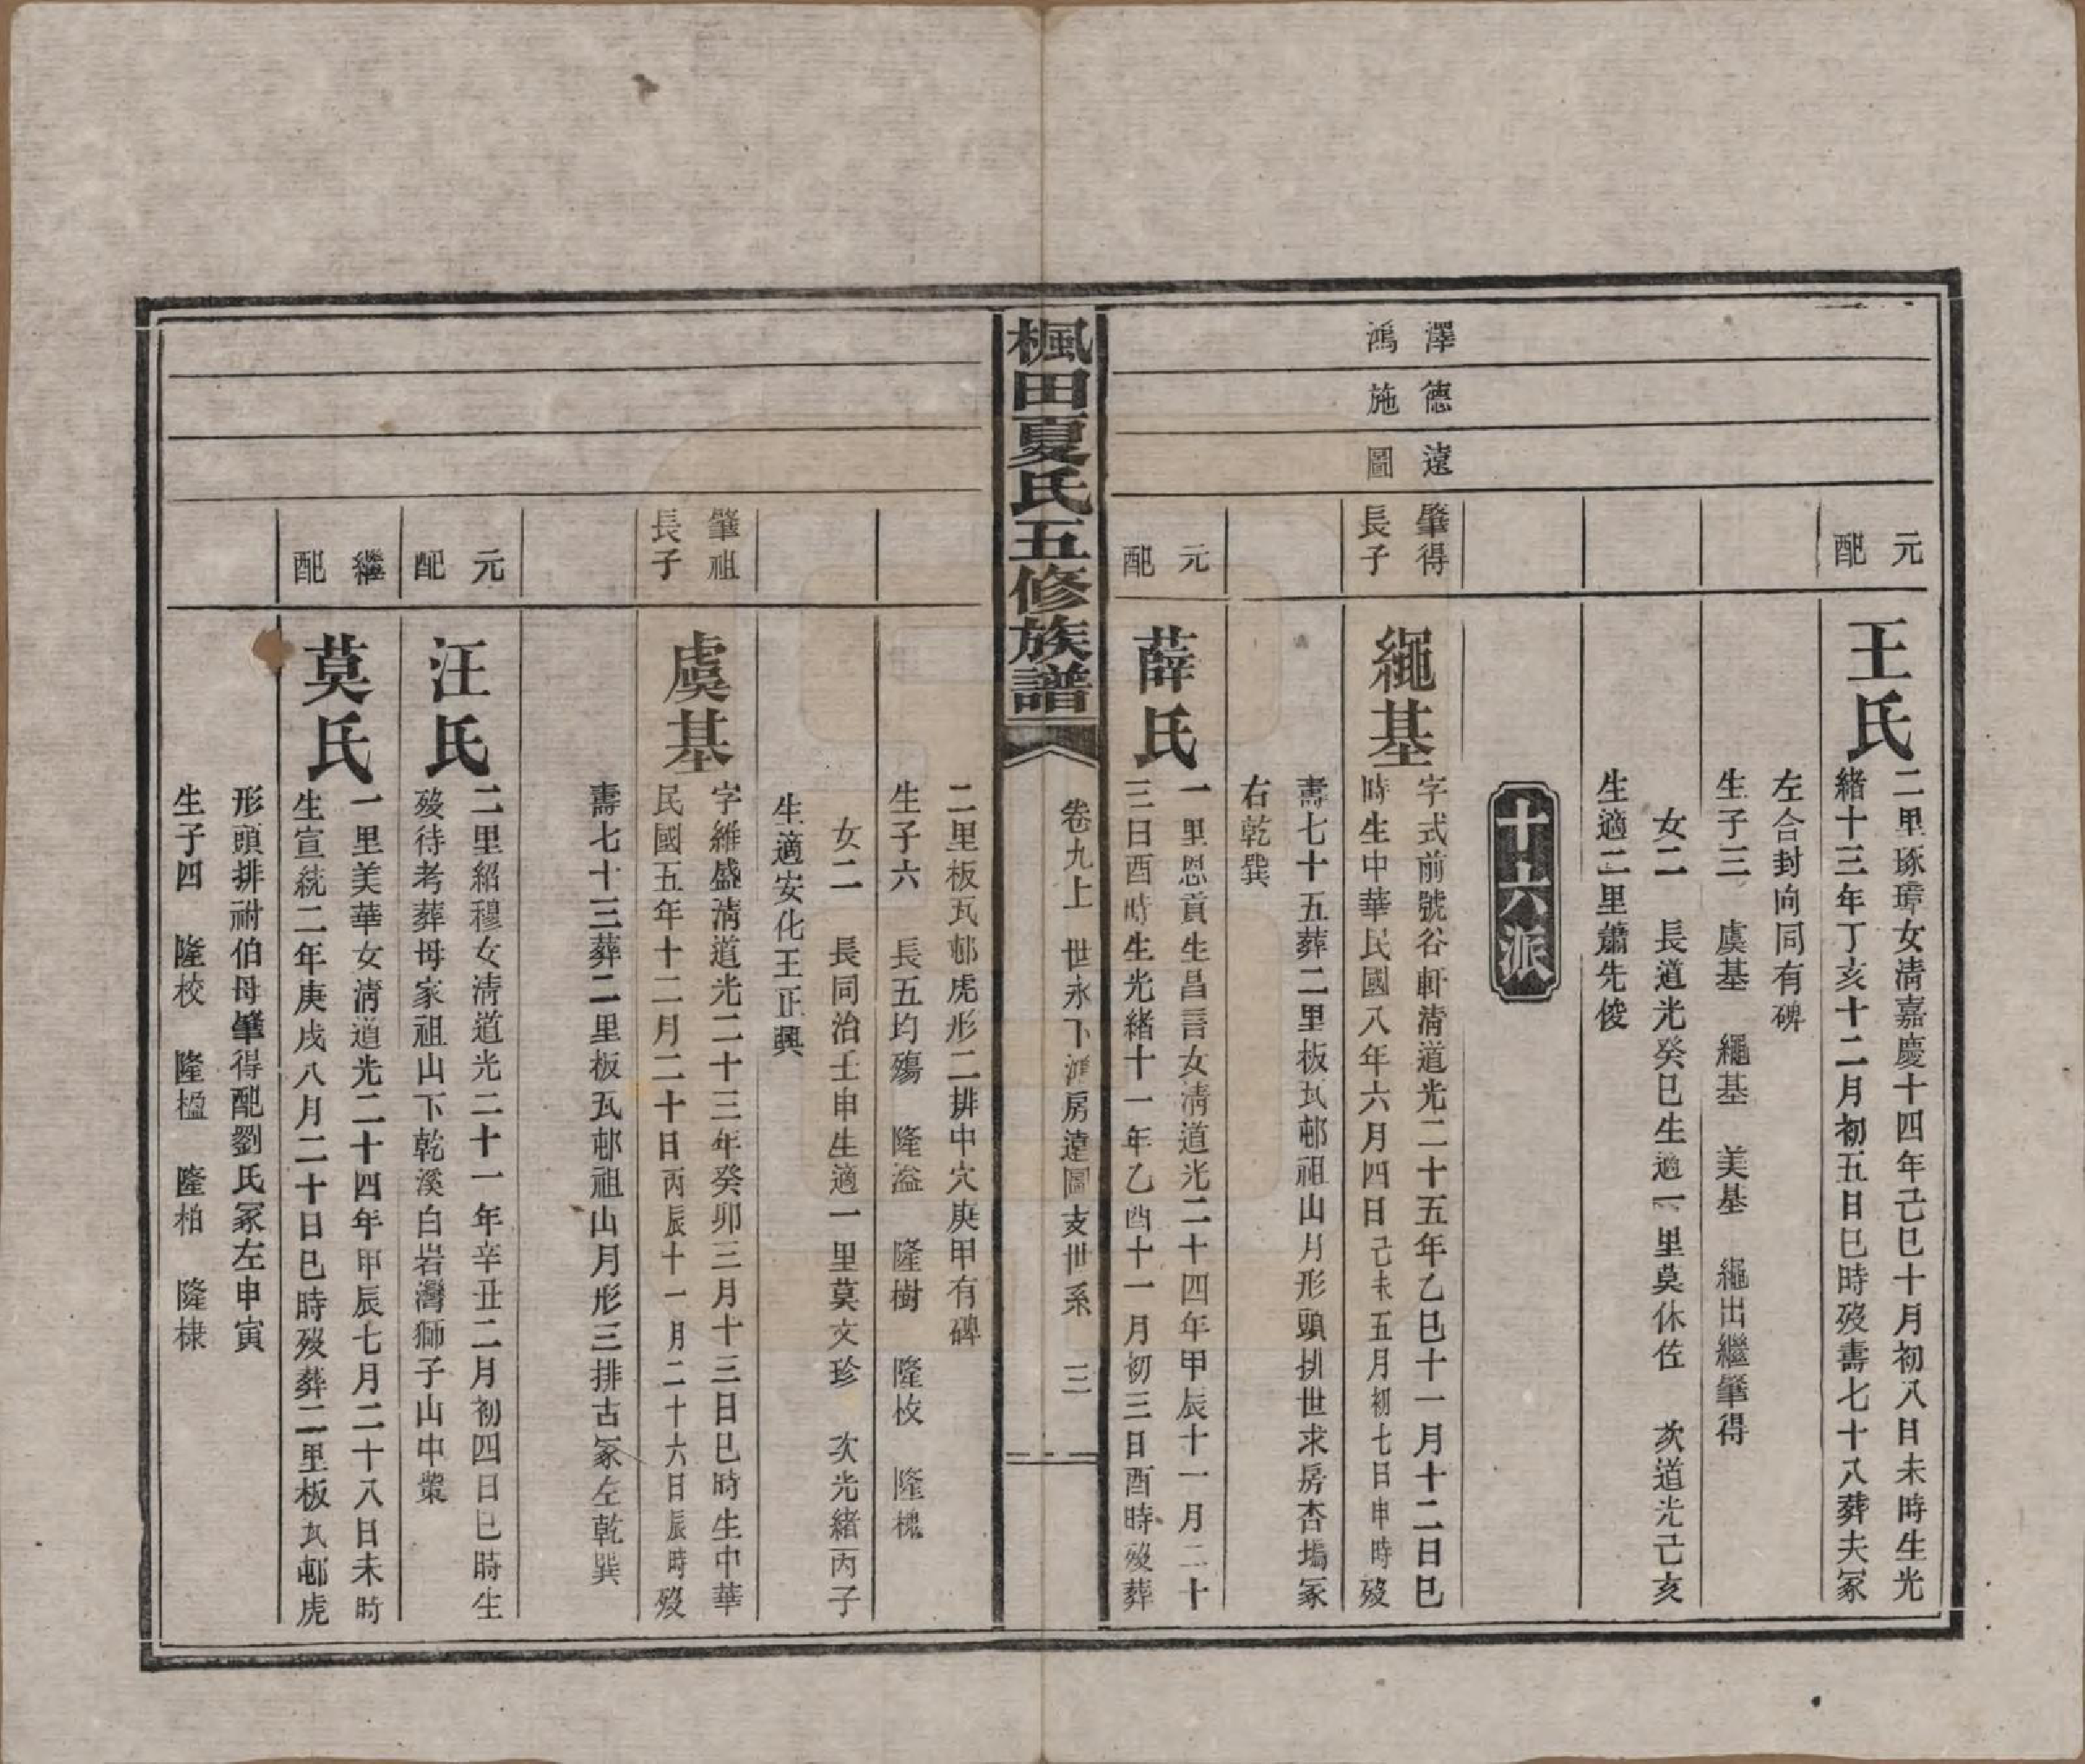 元
配
王氏
二里琢璋女淸嘉慶十四年己巳十月初八日未時生光
緒十三年丁亥十二月初五日巳時歿壽七十八葬夫冢
左合封向同有碑
生子三 虞基 繩基 美基 繩出繼肇得
女二 長道光癸巳生適一里莫休佐 次道光己亥
生適二里蕭先俊
十六派
澤德遠
鴻施圖
肇得
長子
繩基
字式前號谷軒淸道光二十五年乙巳十一月十二日巳
時生中華民國八年六月四日己未五月初七日申時歿
壽七十五葬二里板瓦邨祖山月形頭排世求房杏塢冢
右乾巽
元
配
薛氏
一里恩貢生昌言女淸道光二十四年甲辰十一月二十
三日酉時生光緒十一年乙酉十一月初三日酉時歿葬
楓田夏氏五修族譜
卷九上 世永下鴻房遠圖支世系 三
二里板瓦邨虎形二排中穴庚甲有碑
生子六 長五均殤 隆溢 隆樹 隆枚 隆槐
女二 長同治壬申生適一里莫文珍 次光緒丙子
生適安化王正興
肇祖
長子
虞基
字維盛淸道光二十三年癸卯三月十三日巳時生中華
民國五年十二月二十日丙辰十一月二十六日辰時歿
壽七十三葬二里板瓦邨祖山月形三排古冢左乾巽
元
配
汪氏
二里紹穆女淸道光二十一年辛丑二月初四日巳時生
歿待考葬母家祖山下乾溪白岩灣獅子山中槳
繼
配
莫氏
一里美華女淸道光二十四年甲辰七月二十八日未時
生宣統二年庚戌八月二十日巳時歿葬二里板瓦邨虎
形頭排祔伯母肇得配劉氏冢左申寅
生子四 隆校 隆楹 隆柏 隆棣